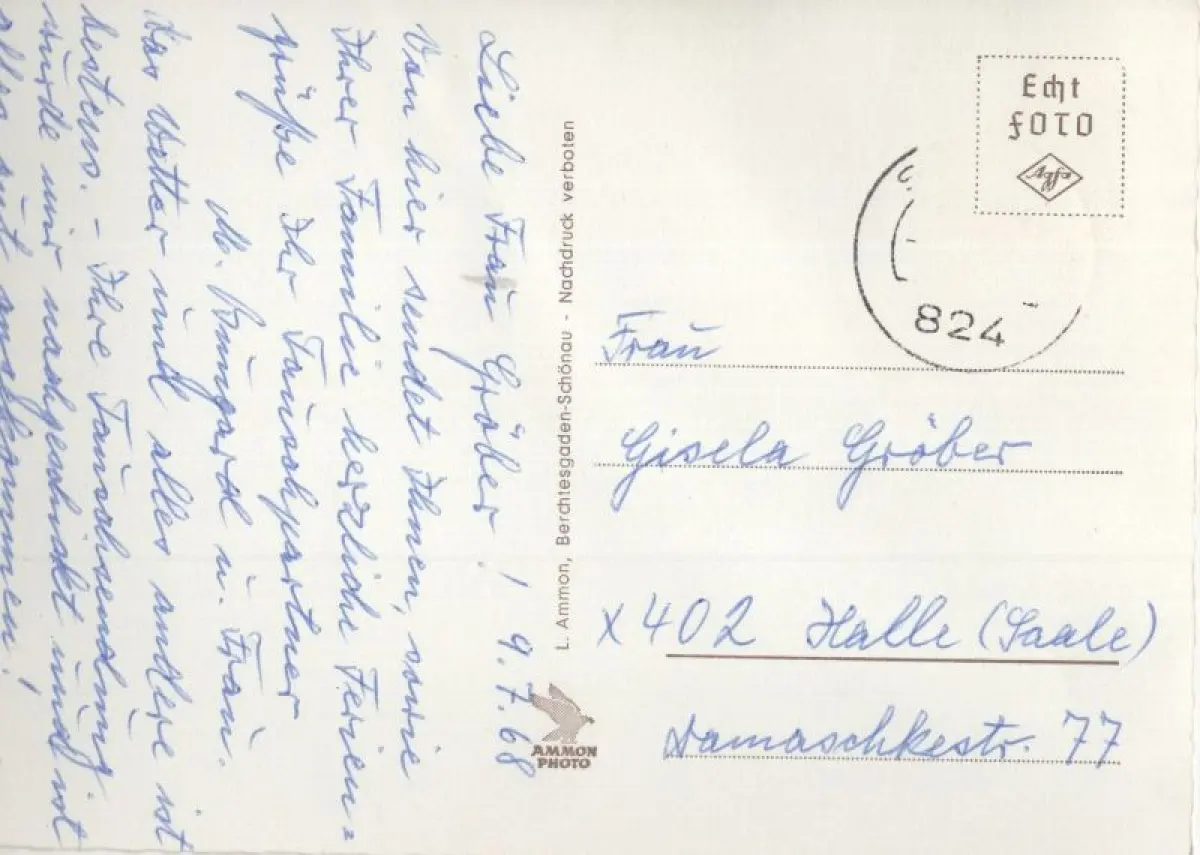 Liebe Frau Gröber! 9.7.68
Von hier sendet Ihnen, sowie
Ihrer Familie herzliche Ferien=
grüße Ihr Tauschpartner
M. Baumgard u. Frau.
Das Wetter und alles andere ist
bestens. - Ihre Tauschsendung
wurde mir nachgeschickt und ist
alles gut angekommen!
L. Ammon, Berchtesgaden-Schönau - Nachdruck verboten
AMMON
PHOTO
Echt
FOTO
Agfa
824
Frau
Gisela Gröber
X402 Halle (Saale)
Damaschkestr. 77